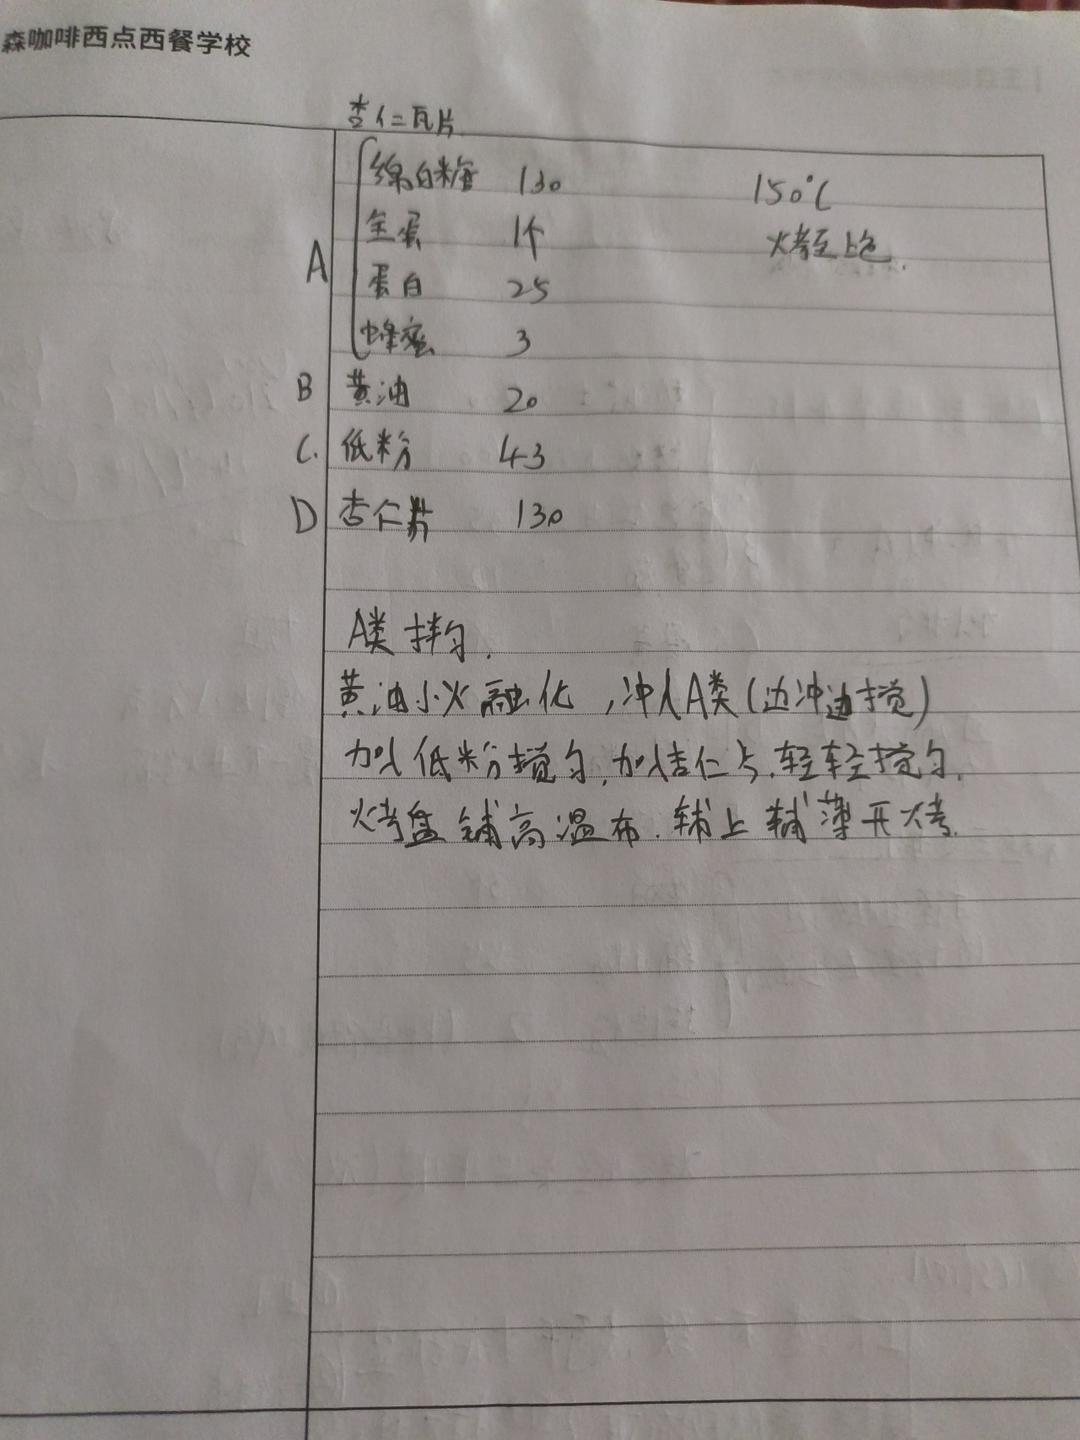 森咖啡西点西餐学校
杏仁瓦片
A
绵白糖 130 150℃
全蛋 1个 烤至上色.
蛋白 25
蜂蜜 3
B 黄油 20
C. 低粉 43
D 杏仁片 130
A类拌匀.
黄油小火融化,冲入A类(边冲边搅)
加入低粉搅匀,加入杏仁片.轻轻搅匀.
烤盘铺高温布.铺上铺薄开烤.